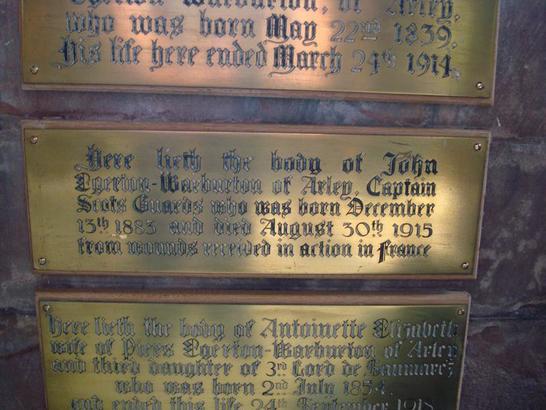 Egerton-Warburton, of Arley,
who was born May 22nd 1839,
his life here ended March 24th 1914.
Here lieth the body of John
Egerton-Warburton of Arley, Captain
Scots Guards who was born December
13th 1883 and died August 30th 1915
from wounds received in action in France
Here lieth the body of Antoinette Elizabeth
wife of Piers Egerton-Warburton of Arley
and third daughter of 3rd Lord de Saumarez
who was born 2nd July 1854
and ended this life 24th September